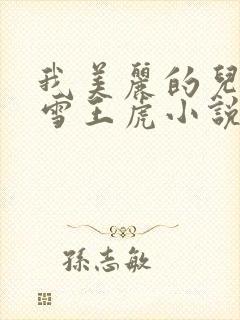 我美麗的兒
雪王虎小說
孫志敏